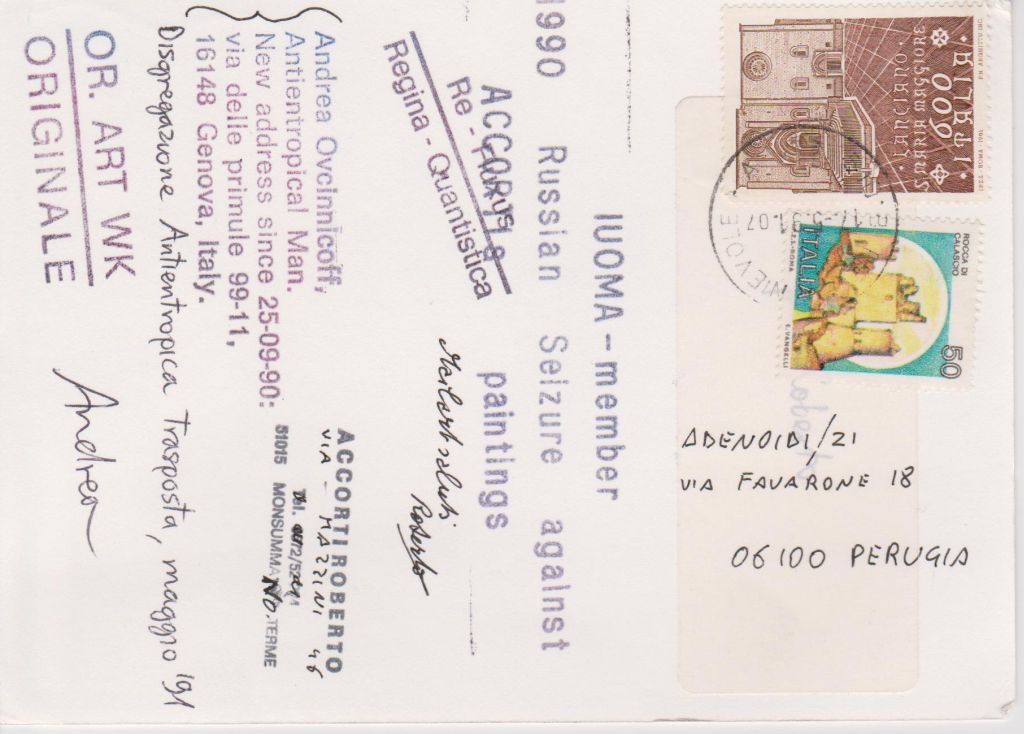 OR. ART WK
ORIGINALE
Disgregazione Antientropica Trasposta, maggio '91
Andrea
Andrea Ovcinnicoff,
Antientropical Man.
New address since 25-09-90:
via delle primule 99-11,
16148 Genova, Italy.
ACCORTI ROBERTO
VIA MAZZINI 46
51015 MONSUMMANO TERME
Re - Fluxus
Regina - Quantistica
Mailartsaluti
Roberto
IUOMA - member
1990 Russian Seizure against
ACCORTI's paintings
ITALIA
600
ROCCA DI
CALASCIO
ITALIA
50
I.P.Z.S. ROMA
E. VANGELLI
NIEVOLE
ADENOIDI/21
VIA FAVARONE 18
06100 PERUGIA